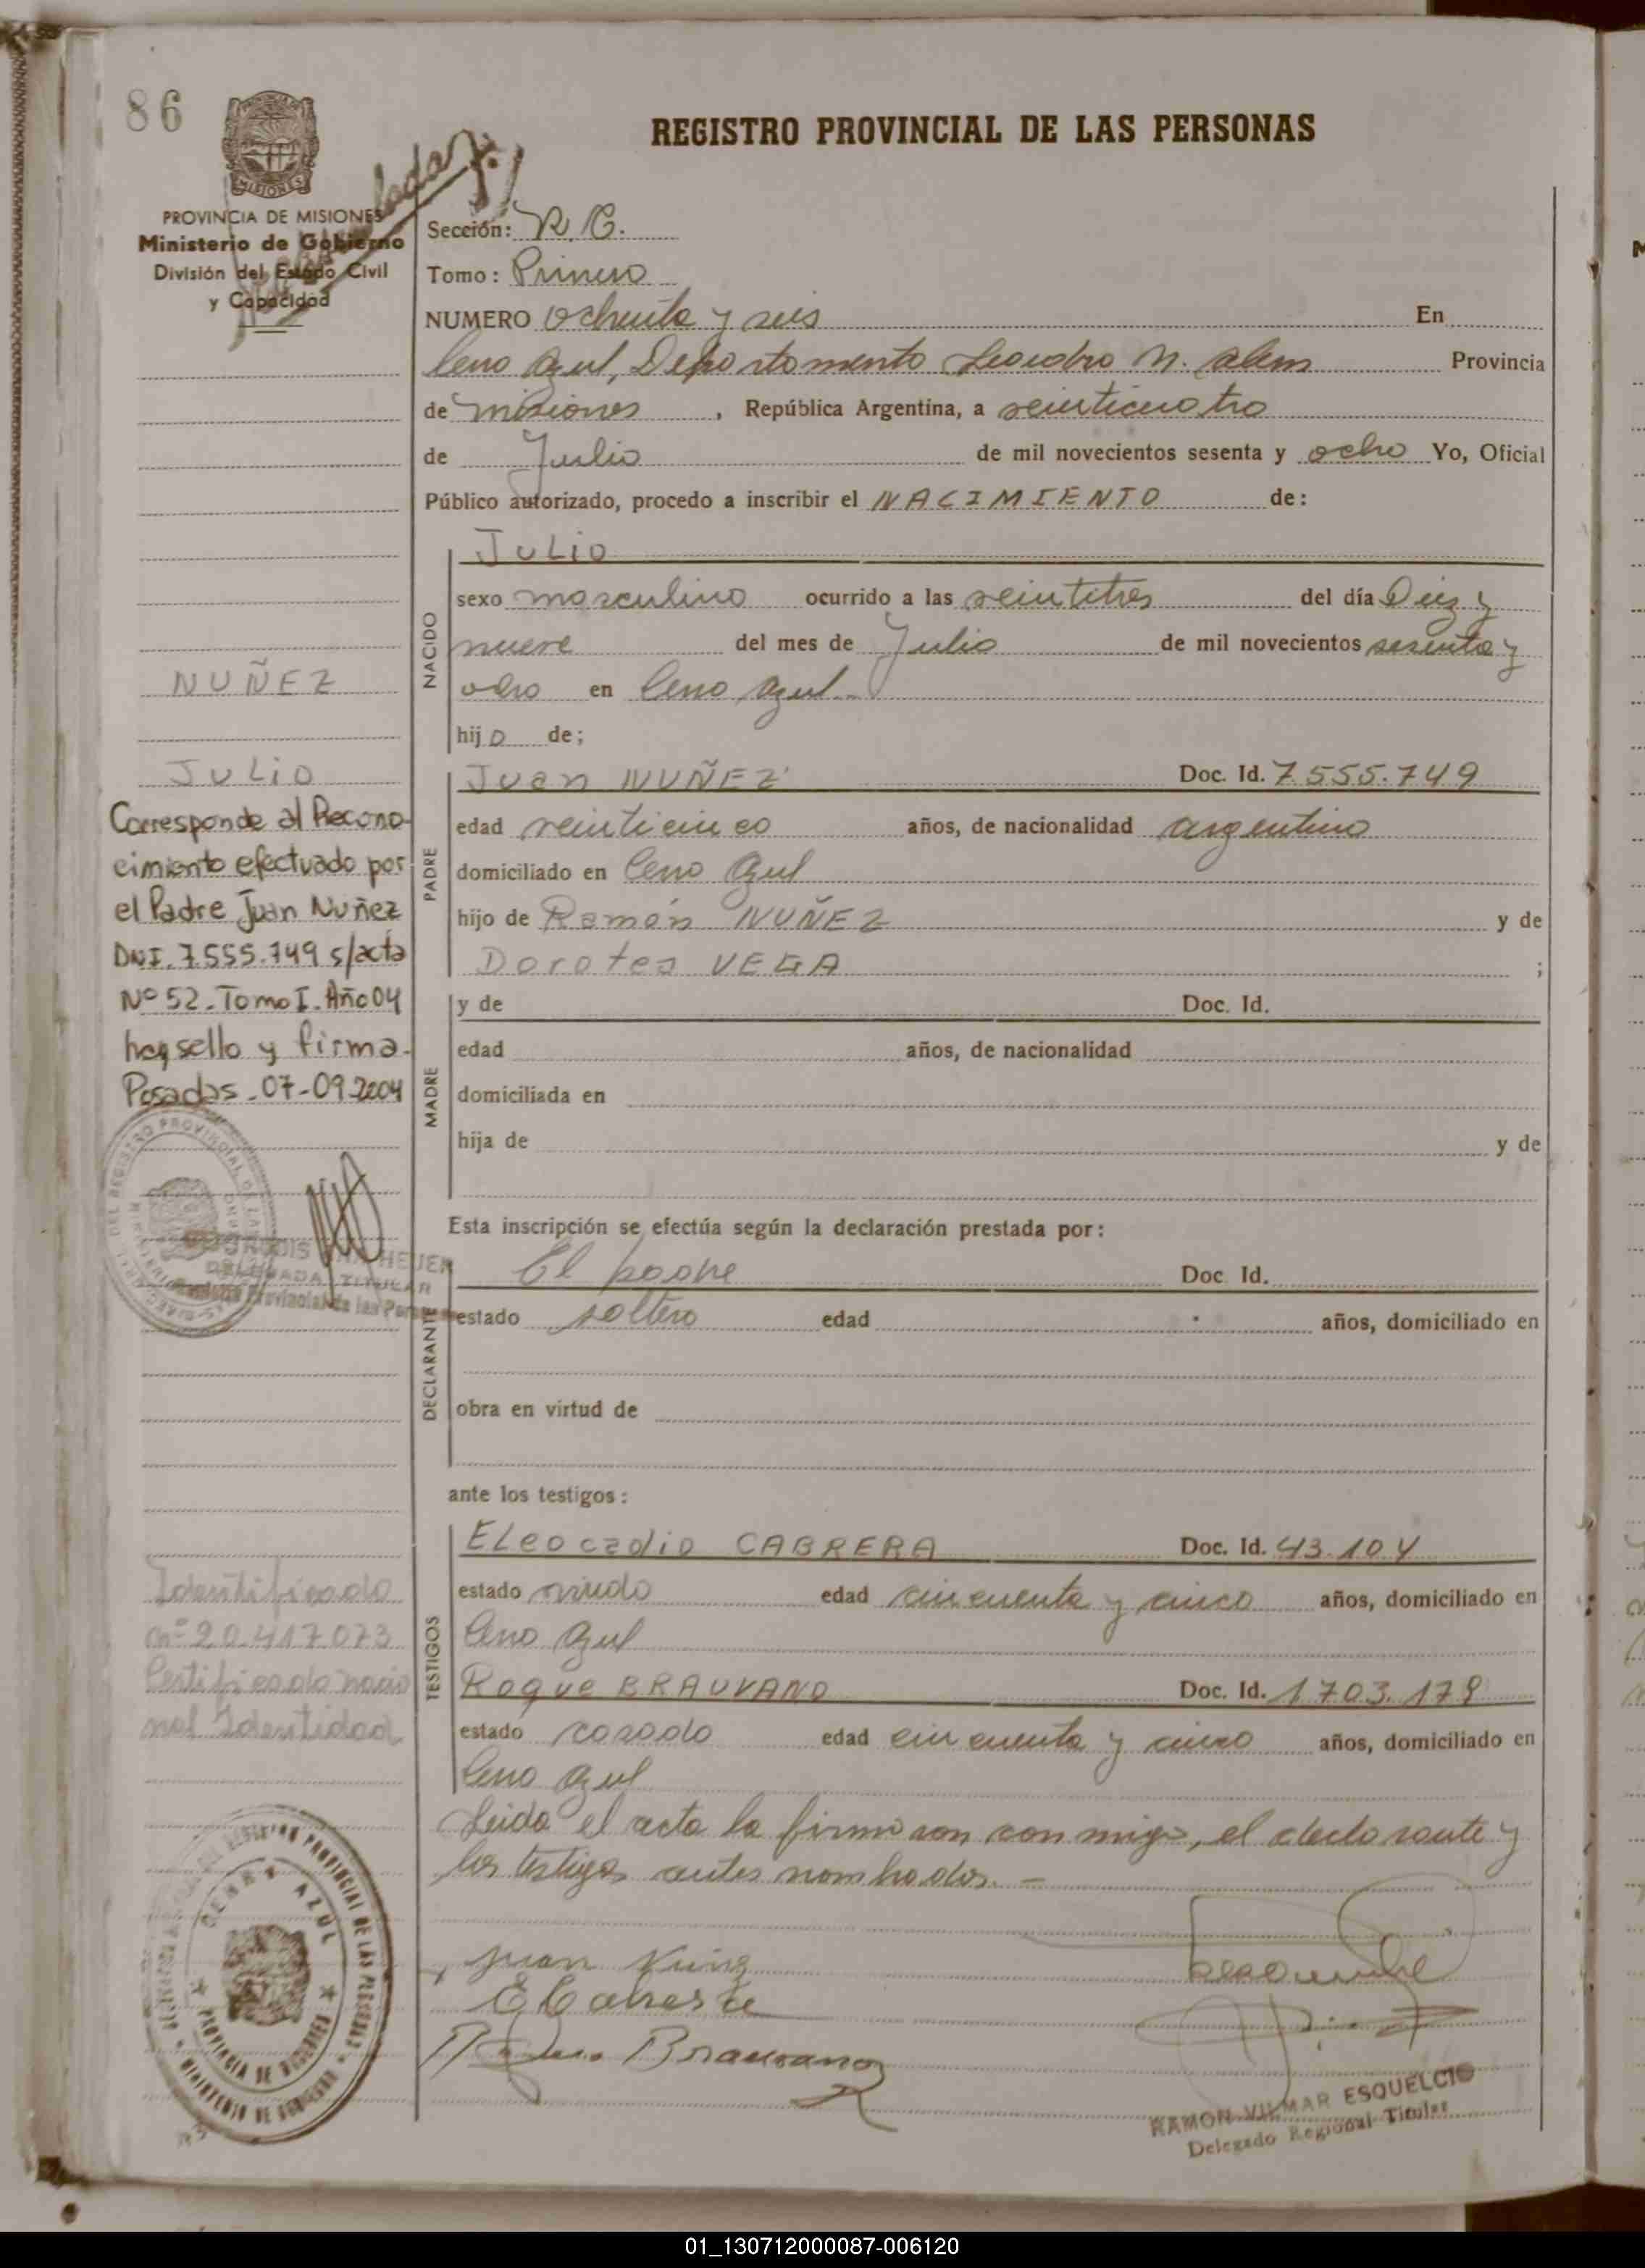 86
REGISTRO PROVINCIAL DE LAS PERSONAS
MISIONES
PROVINCIA DE MISIONES
Ministerio de Gobierno
División del Estado Civil
y Capacidad
Sección: R. C.
Tomo: Primero
NUMERO ochenta y seis En
Cerro Azul, Departamento Leandro N. Alem Provincia
de Misiones, República Argentina, a veinticuatro
de Julio de mil novecientos sesenta y ocho Yo, Oficial
Público autorizado, procedo a inscribir el NACIMIENTO de:
NACIDO
JULIO
sexo masculino ocurrido a las veintitres del día Diez y
nueve del mes de Julio de mil novecientos sesenta y
ocho en Cerro Azul.
hijo de;
PADRE
Juan NUÑEZ Doc. Id. 7.555.749
edad veinticinco años, de nacionalidad argentino
domiciliado en Cerro Azul
hijo de Ramón NUÑEZ y de
Dorotea VEGA ;
MADRE
y de Doc. Id.
edad años, de nacionalidad
domiciliada en
hija de y de
Esta inscripción se efectúa según la declaración prestada por:
DECLARANTE
El padre Doc. Id.
estado soltero edad años, domiciliado en
obra en virtud de
ante los testigos:
TESTIGOS
ELeocadio CABRERA Doc. Id. 43.104
estado viudo edad cincuenta y cinco años, domiciliado en
Cerro Azul
Roque BRAUVANO Doc. Id. 1703.178
estado casado edad cincuenta y cinco años, domiciliado en
Cerro Azul
Leida el acta la firmaron conmigo, el declarante y
los testigos antes nombrados. -
Juan Nuñez
E Cabrera
Roque Brauvano
RAMON VILMAR ESQUELCIO
Delegado Regional Titular
NUÑEZ
JULIO
Corresponde al Recono-
cimiento efectuado por
el Padre Juan Nuñez
DNI. 7.555.749 s/acta
Nº 52. Tomo I. Año 04
hay sello y firma.
Posadas. 07-09-2004
DELEGADA TITULAR
Registro Provincial de las Personas
Identificado
nº 20.417.073
Certificado nacio
nal Identidad
REGISTRO PROVINCIAL DE LAS PERSONAS
CERRO AZUL
PROVINCIA DE MISIONES
MINISTERIO DE GOBIERNO
01_130712000087-006120